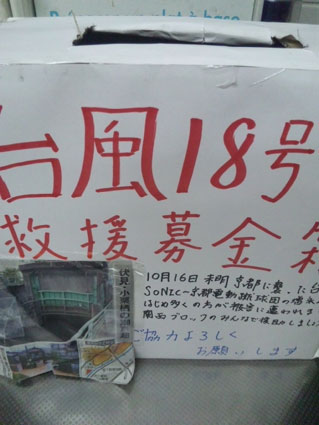 台風18号
救援募金箱
伏見・小栗栖の道路
10月16日未明京都に襲った台
SONIC-京都電動蹴球団の
はじめ多くの方が被害に遭われま
関西ブロックのみんなで援助しまし
ご協力よろしく
お願いします